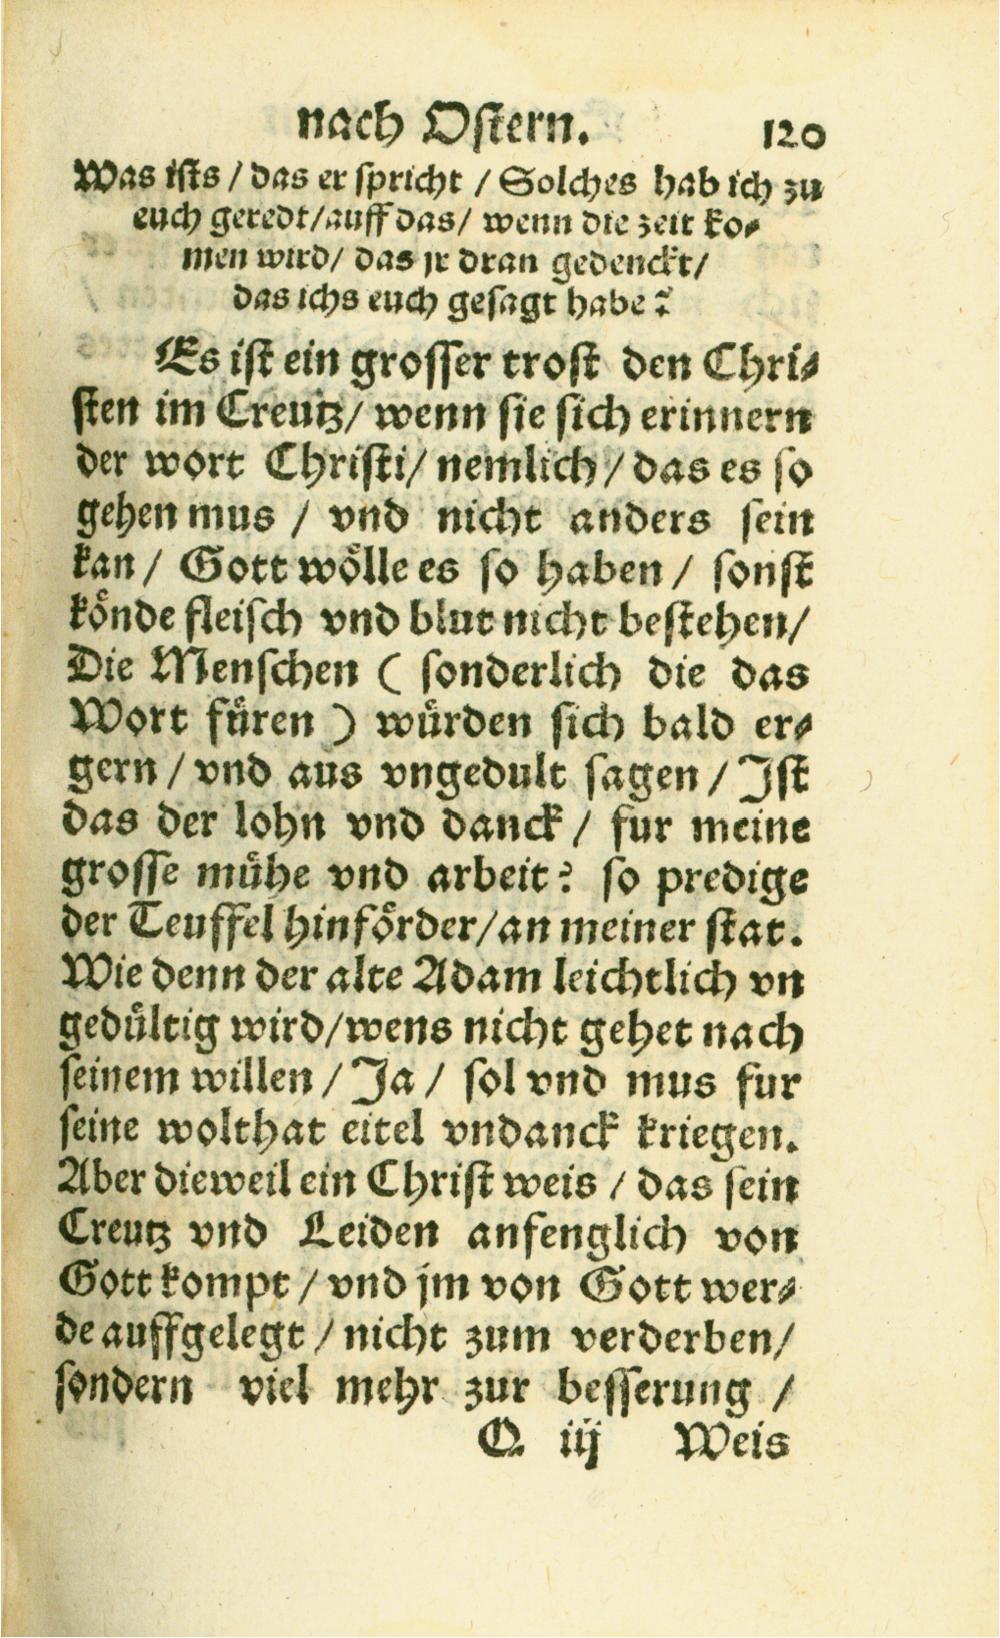 nach Ostern. 120
Was ists / das er spricht / Solches hab ich zu
euch geredt/auff das/ wenn die zeit ko-
men wird/ das jr dran gedenckt/
das ichs euch gesagt habe?
Es ist ein grosser trost den Chri-
sten im Creutz/ wenn sie sich erinnern
der wort Christi/ nemlich / das es so
gehen mus / vnd nicht anders sein
kan / Gott wölle es so haben / sonst
könde fleisch vnd blut nicht bestehen/
Die Menschen ( sonderlich die das
Wort füren ) würden sich bald er-
gern / vnd aus vngedult sagen / Ist
das der lohn vnd danck / fur meine
grosse mühe vnd arbeit? so predige
der Teuffel hinförder/an meiner stat.
Wie denn der alte Adam leichtlich vn
gedültig wird/wens nicht gehet nach
seinem willen / Ja / sol vnd mus fur
seine wolthat eitel vndanck kriegen.
Aber dieweil ein Christ weis / das sein
Creutz vnd Leiden anfenglich von
Gott kompt / vnd jm von Gott wer-
de auffgelegt / nicht zum verderben/
sondern viel mehr zur besserung /
Q iij Weis